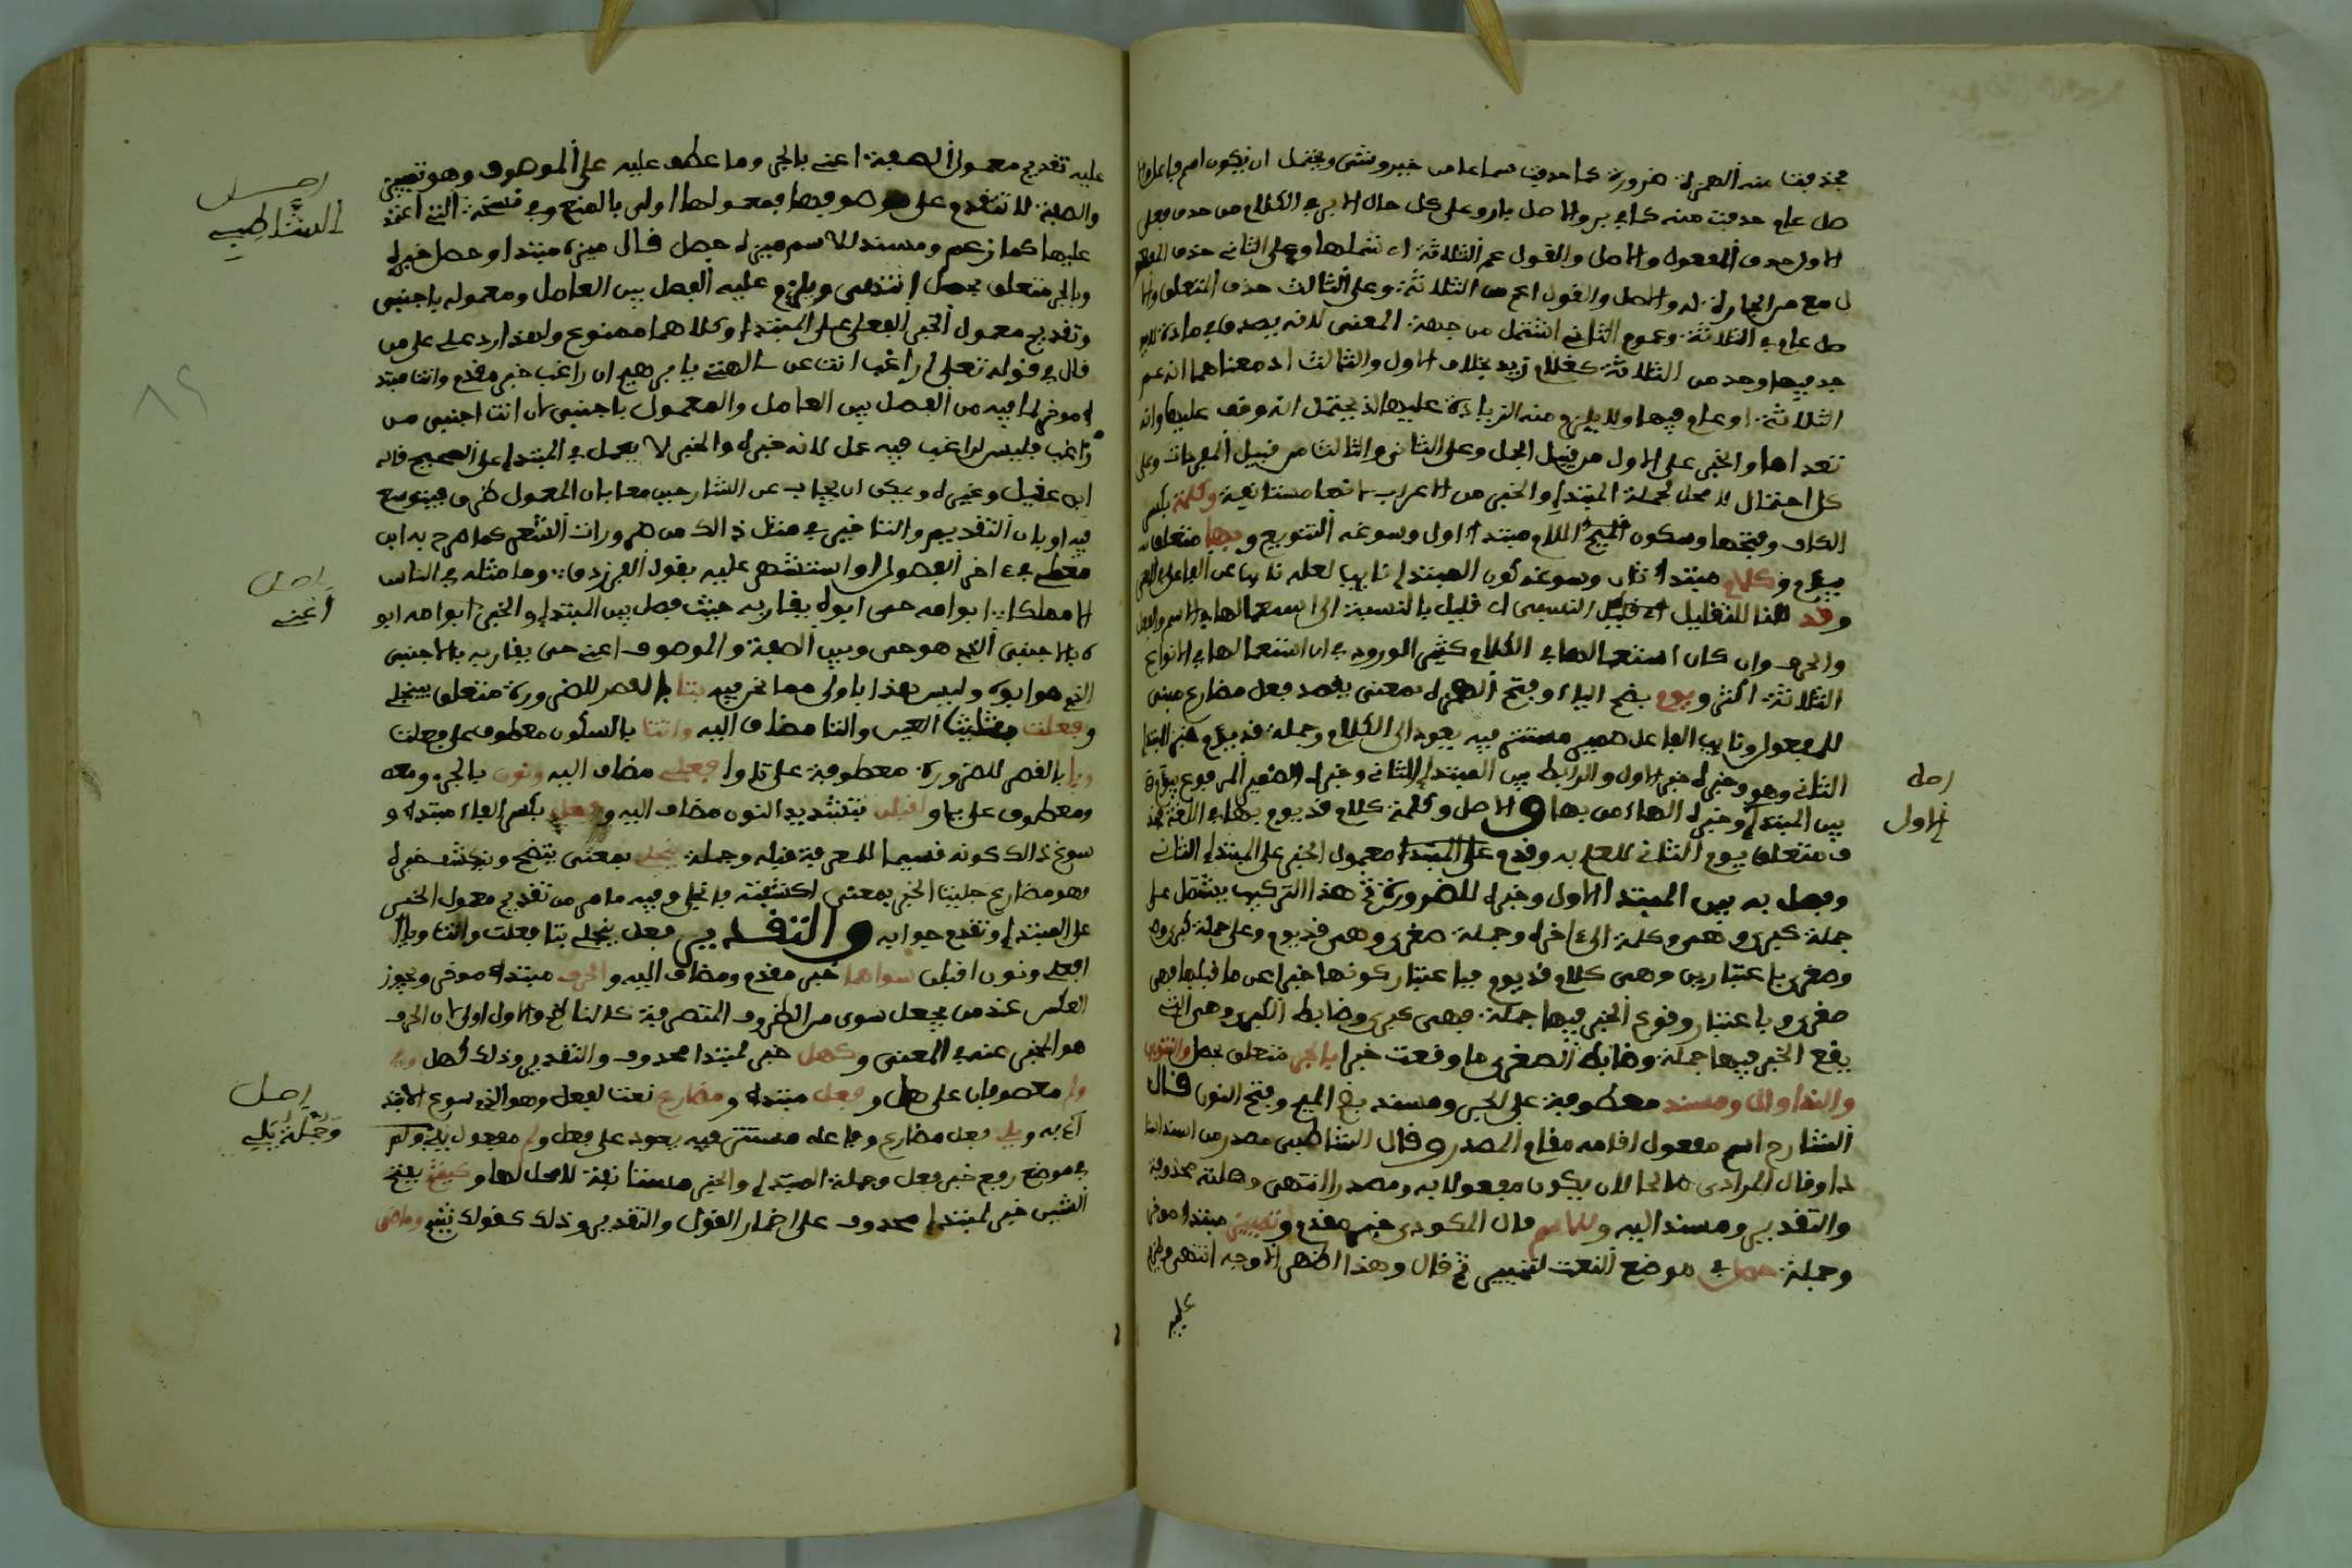 محذوفتا منه الهمزة ضرورة كما حذفت سماعا من خير وشر ويحتمل ان يكون اسم فاعل
صل عام حذفت منه كما في بر والاصل بارر وعلى كل حال الا في الكلام من حذف فعلى
الاول حذف المفعول والاصل والقول عم الثلاثة اي شملها وعلى الثاني حذف
مع من الجارة له والاصل والقول اعم من الثلاثة وعلى الثالث حذف المتعلق
صل عام في الثلاثة وعموم الثاني اشتمل من جهة المعنى لانه يصدق في مادة
جد فيها وحد من الثلاثة كغلام زيد بخلاف الاول والثالث اذ معناهما انه عم
الثلاثة او عام فيها ولا يلزم منه الزيادة عليها اذ يحتمل انه وقف عليها وانه
تعداها والخبر على الاول من قبيل الجمل وعلى الثاني والثالث من قبيل المفردات وعلى
كل احتمال لا محل لجملة المبتدا والخبر من الاعراب لانها مستانفة وكلمة بكسر
الكاف وفتحها وسكون اللام مبتدا اول وسوغه التنويع وبها متعلقان
بيوم وكلام مبتدا ثان وسوغه كون المبتدا نايبا لعله نايبا عن الفاعل في المعنى
وقد للتقليل النسبي اي قليل بالنسبة الى استعمالها في الاسم والفعل
والحرف وان كان استعمالها في الكلام كثير الورود في ان استعمالها في الانواع
الثلاثة اكثر ويوم بضم الياء وفتح الهمزة بمعنى يقصد فعل مضارع مبني
للمفعول ونايب الفاعل ضمير مستتر فيه يعود الى الكلام وجملة قد يوم خبر المبتدا
الثاني وهو وخبره خبر الاول والرابط بين المبتدا الثاني وخبره الضمير المرفوع بيوم
بين المبتدا وخبره الهاء من بها والاصل وكلمة كلام قد يوم بها في اللغة
ف متعلق بيوم الثاني للعلم به وقدم على المبتدا معمول الخبر على المبتدا الثاني
وفصل به بين المبتدا الاول وخبره للضرورة ثم هذا التركيب يشتمل على
جملة كبرى وهي وكلمة الى اخره وجملة صغرى وهي قد يوم وعلى جملة كبرى
وصغرى باعتبارين وهي كلام قد يوم فباعتبار كونها خبرا عن ما قبلها فهي
صغرى وباعتبار وقوع الخبر فيها جملة فهي كبرى وضابط الكبرى وهي التي
يقع الخبر فيها جملة وضابط الصغرى ما وقعت خبرا بالجر متعلق بحصل والتنوين
والندا وال ومسند معطوفة على الجر ومسند بضم الميم وفتح النون قال
الشارح اسم مفعول اقامه مقام المصدر وقال الشاطبي مصدر من اسند
وقال المرادي صالحا لان يكون مفعولا به ومصدرا انتهى وصلته محذوفة
والتقدير ومسند اليه وللاسم قال المكودي خبر مقدم وتمييز مبتدا موخر
وجملة حصل في موضع النعت لتمييز ثم قال وهذا اظهر الاوجه انتهى ويلزم
عليه
اصل
الاول
عليه تقديم معمول الصفة اعني بالجر وما عطف عليه على الموصوف وهو تمييز
والصفة لا تتقدم على موصوفها فمعمولها اولى بالمنع وفي نسخة التي اعتمد
عليها كما زعم ومسند للاسم ميزه حصل قال ميزه مبتدا وحصل خبره
وبالجر متعلق بحصل انتهى ويلزم عليه الفصل بين العامل ومعموله باجنبي
وتقديم معمول الخبر الفعلي على المبتدا وكلاهما ممنوع ولهذا رد على من
قال في قوله تعلى اراغب انت عن الهتي يا ابرهيم ان راغب خبر مقدم وانت مبتد
ا موخر لما فيه من الفصل بين العامل والمعمول باجنبي لان انت اجنبي من
راغب فليس لراغب فيه عمل لانه خبره والخبر لا يعمل في المبتدا على الصحيح قاله
ابن عقيل وغيره ويمكن ان يجاب عن الشارحين معا بان المعمول ظرف فيتوسع
فيه او بان التقديم والتاخير في مثل ذالك من ضرورات الشعر كما صرح به ابن
معطي في اخر الفصول واستشهد عليه بقول الفرزدق وما مثله في الناس
الا مملكا ابو امه حي ابوه يقاربه حيث فصل بين المبتدا والخبر ابو امه ابو
ه بالاجنبي الذي هو حي وبين الصفة والموصوف اعني حي يقاربه بالاجنبي
الذي هو ابوه وليس هذا باولى مما نحن فيه بتا بالقصر للضرورة متعلق بينجلي
وفعلت بتثليث العين والتا مضاف اليه واتت بالسكون معطوف على فعلت
ويا بالقصر للضرورة معطوفة على تا وافعلي مضاف اليه ونون بالجر ومعه
ومعطوف على يا واقبلن بتشديد النون مضاف اليه وفعل بكسر الفاء مبتدا و
سوغ ذالك كونه قسيما للمعرفة قبله وجملة ينجلي بمعنى يتضح وينكشف خبره
وهو مضارع جليت الخبر بمعنى كشفته فانجلى وفيه ما مر من تقديم معمول الخبر
على المبتدا وتقدم جوابه والتقدير فعل ينجلي بتا فعلت واتت ويا
افعلي ونون اقبلن سواهما خبر مقدم ومضاف اليه والحرف مبتدا موخر ويجوز
العكس عند من يجعل سوى من الظروف المتصرفة كالناظم والاول اولى لان الحرف
هو الخبر عنه في المعنى وكهل خبر لمبتدا محذوف والتقدير وذلك كهل وفي
ولم معطوفان على هل وفعل مبتدا ومضارع نعت لفعل وهو الذي سوغ الابتد
اء به ويلي فعل مضارع وفاعله مستتر فيه يعود على فعل ولم مفعول يلي ويلي ولم
في موضع رفع خبر فعل وجملة المبتدا والخبر مستانفة لا محل لها وكيشم بفتح
الشين خبر لمبتدا محذوف على اضمار القول والتقدير وذلك كقولك يشم وماضي
اصل
الشاطبي
اصل
اعني
اصل
وجملة يلي